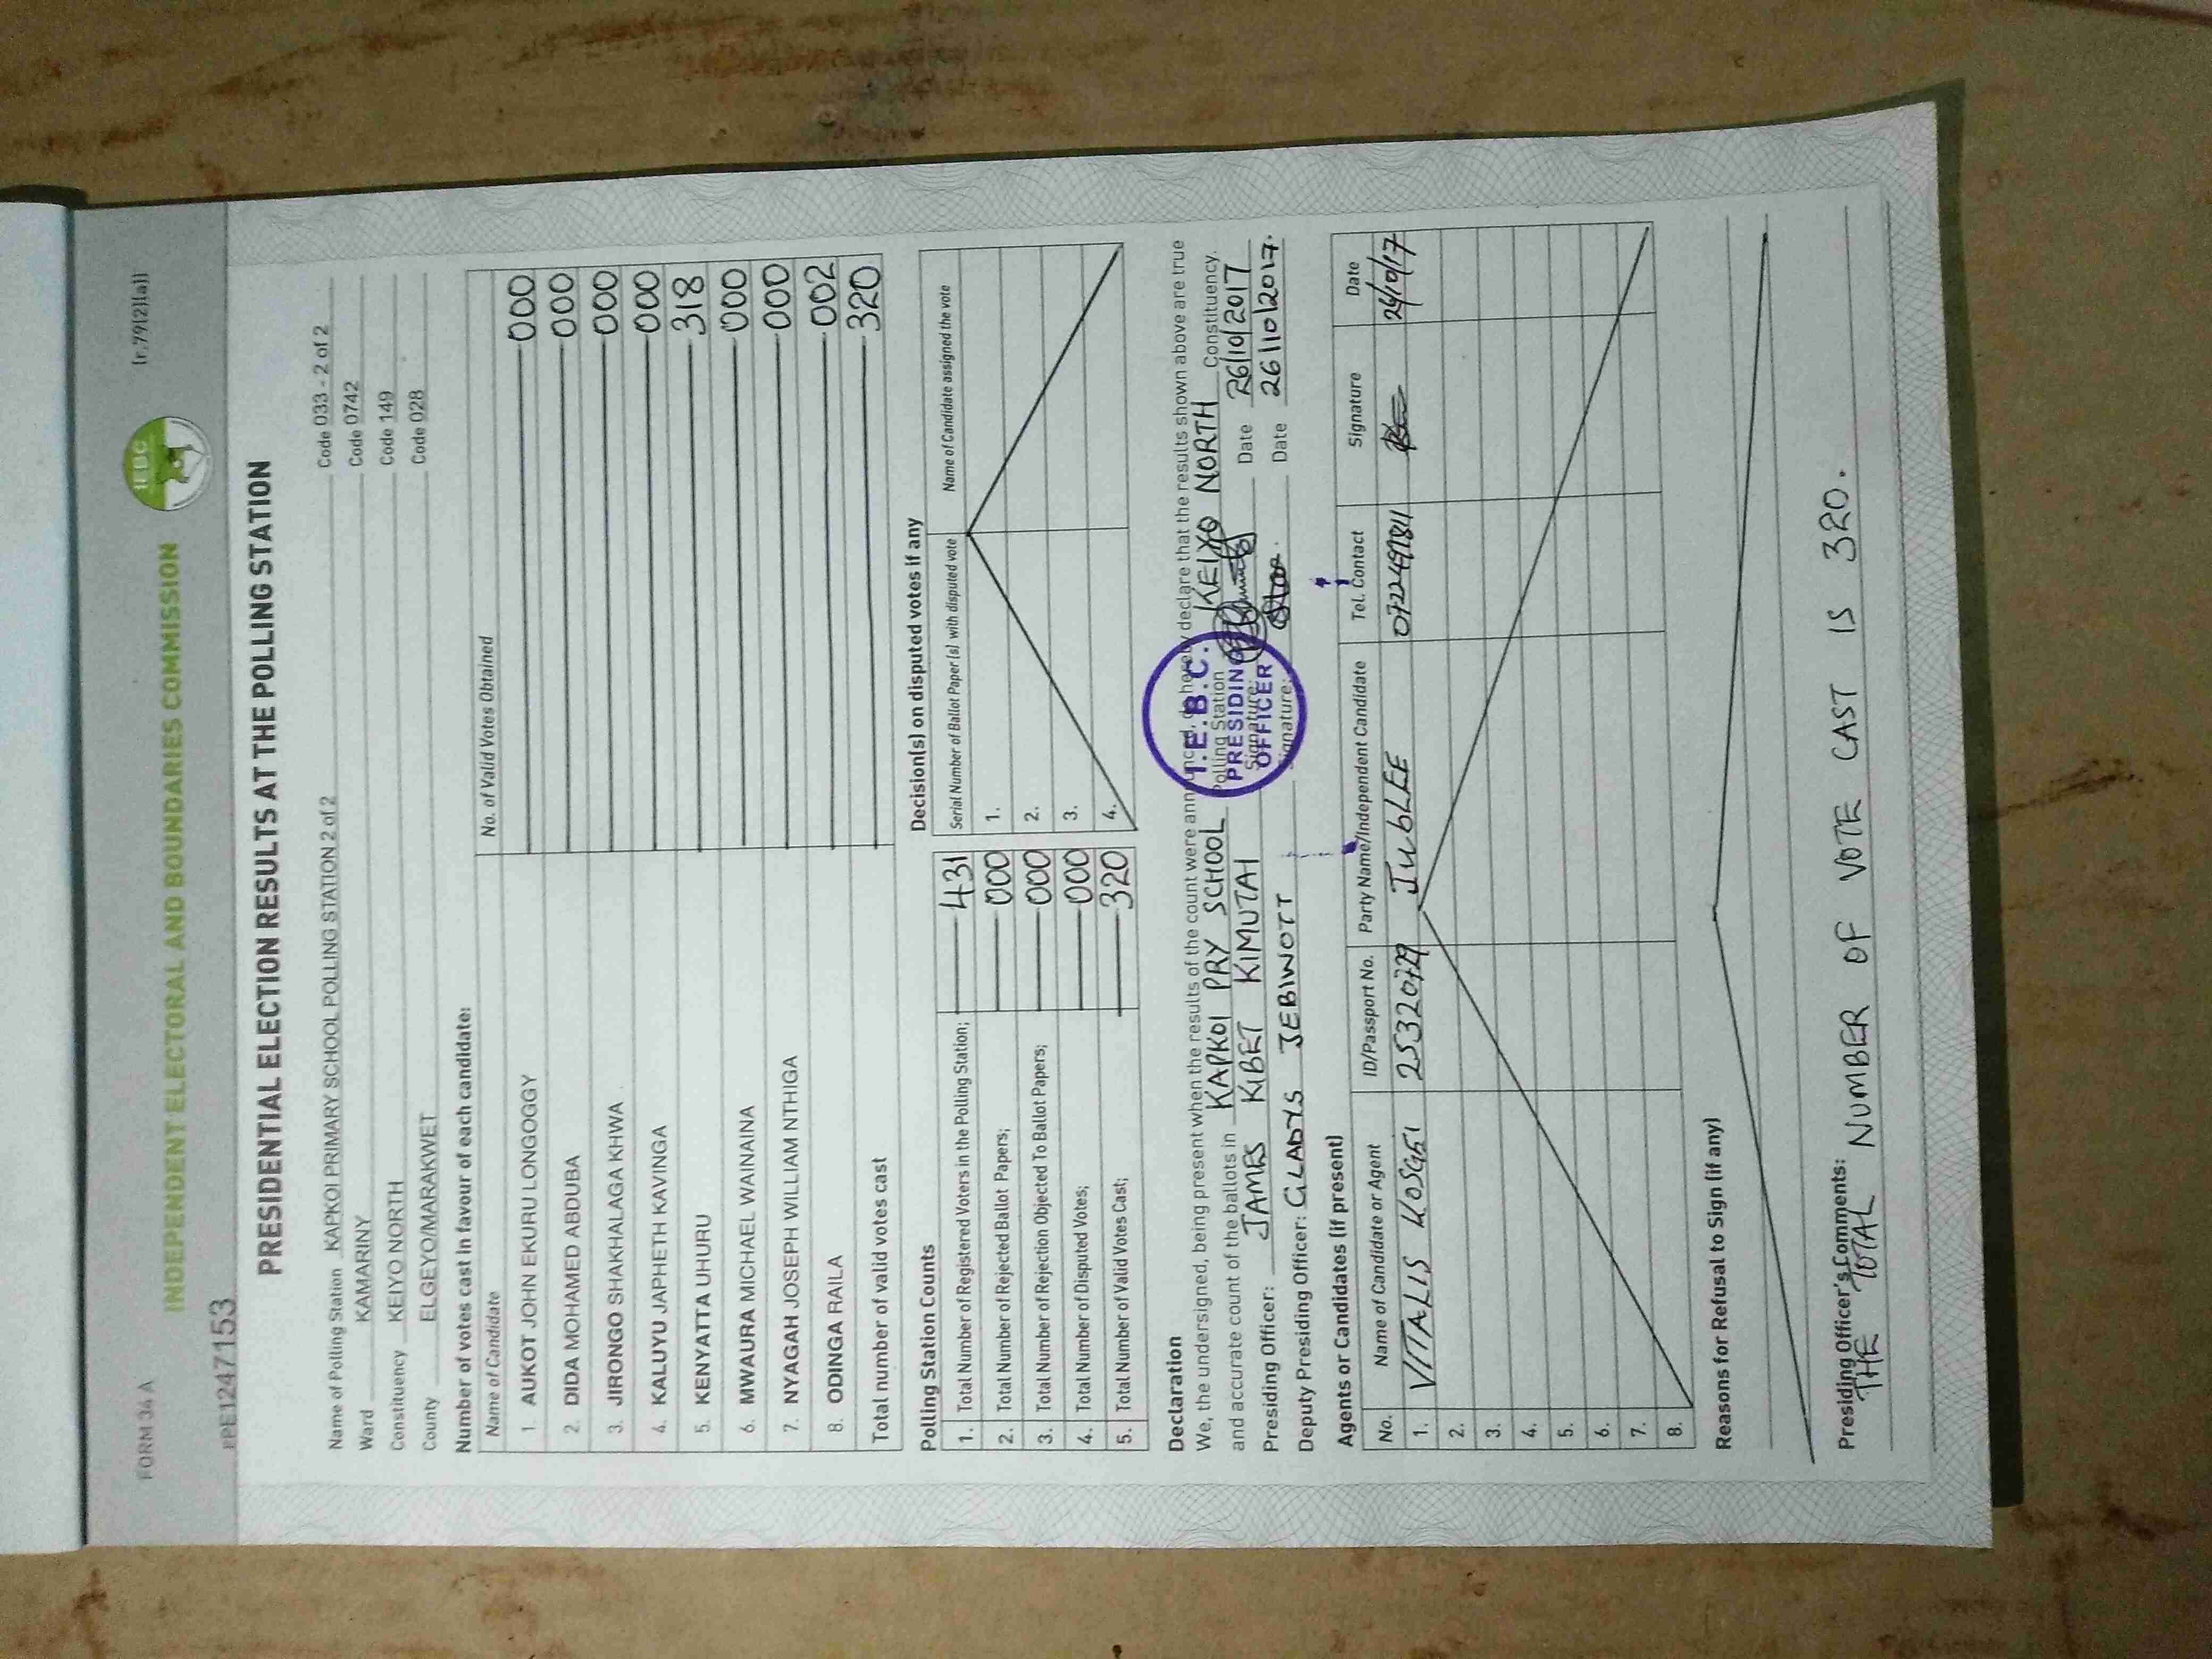 FORM 34 A
(r.79(2)(a))
INDEPENDENT ELECTORAL AND BOUNDARIES COMMISSION
IEBC
PRESIDENTIAL ELECTION RESULTS AT THE POLLING STATION
Name of Polling Station KAPKOI PRIMARY SCHOOL POLLING STATION 2 of 2 Code 033 - 2 of 2
Ward KAMARINY Code 0742
Constituency KEIYO NORTH Code 149
County ELGEYO/MARAKWET Code 028
Number of votes cast in favour of each candidate:
Name of Candidate No. of Valid Votes Obtained
1. AUKOT JOHN EKURU LONGOGGY 000
2. DIDA MOHAMED ABDUBA 000
3. JIRONGO SHAKHALAGA KHWA 000
4. KALUYU JAPHETH KAVINGA 000
5. KENYATTA UHURU 318
6. MWAURA MICHAEL WAINAINA 000
7. NYAGAH JOSEPH WILLIAM NTHIGA 000
8. ODINGA RAILA 002
Total number of valid votes cast 320
Polling Station Counts
1. Total Number of Registered Voters in the Polling Station; 431
2. Total Number of Rejected Ballot Papers; 000
3. Total Number of Rejection Objected To Ballot Papers; 000
4. Total Number of Disputed Votes; 000
5. Total Number of Valid Votes Cast; 320
Decision(s) on disputed votes if any
Serial Number of Ballot Paper (s) with disputed vote Name of Candidate assigned the vote
1.
2.
3.
4.
Declaration
We, the undersigned, being present when the results of the count were announced, do hereby declare that the results shown above are true
and accurate count of the ballots in KAPKOI PRY SCHOOL Polling Station KEIYO NORTH Constituency.
Presiding Officer: JAMES KIBET KIMUTAI Signature: Date 26/10/2017
Deputy Presiding Officer: GLADYS JEBIWOTT Signature: Date 26/10/2017.
I.E.B.C.
PRESIDING
OFFICER
Agents or Candidates (if present)
No. Name of Candidate or Agent ID/Passport No. Party Name/Independent Candidate Tel. Contact Signature Date
1. VITALIS KOSGEI JubLEE 26/10/17
2.
3.
4.
5.
6.
7.
8.
Reasons for Refusal to Sign (if any)
Presiding Officer's Comments:
THE TOTAL NUMBER OF VOTE CAST IS 320.